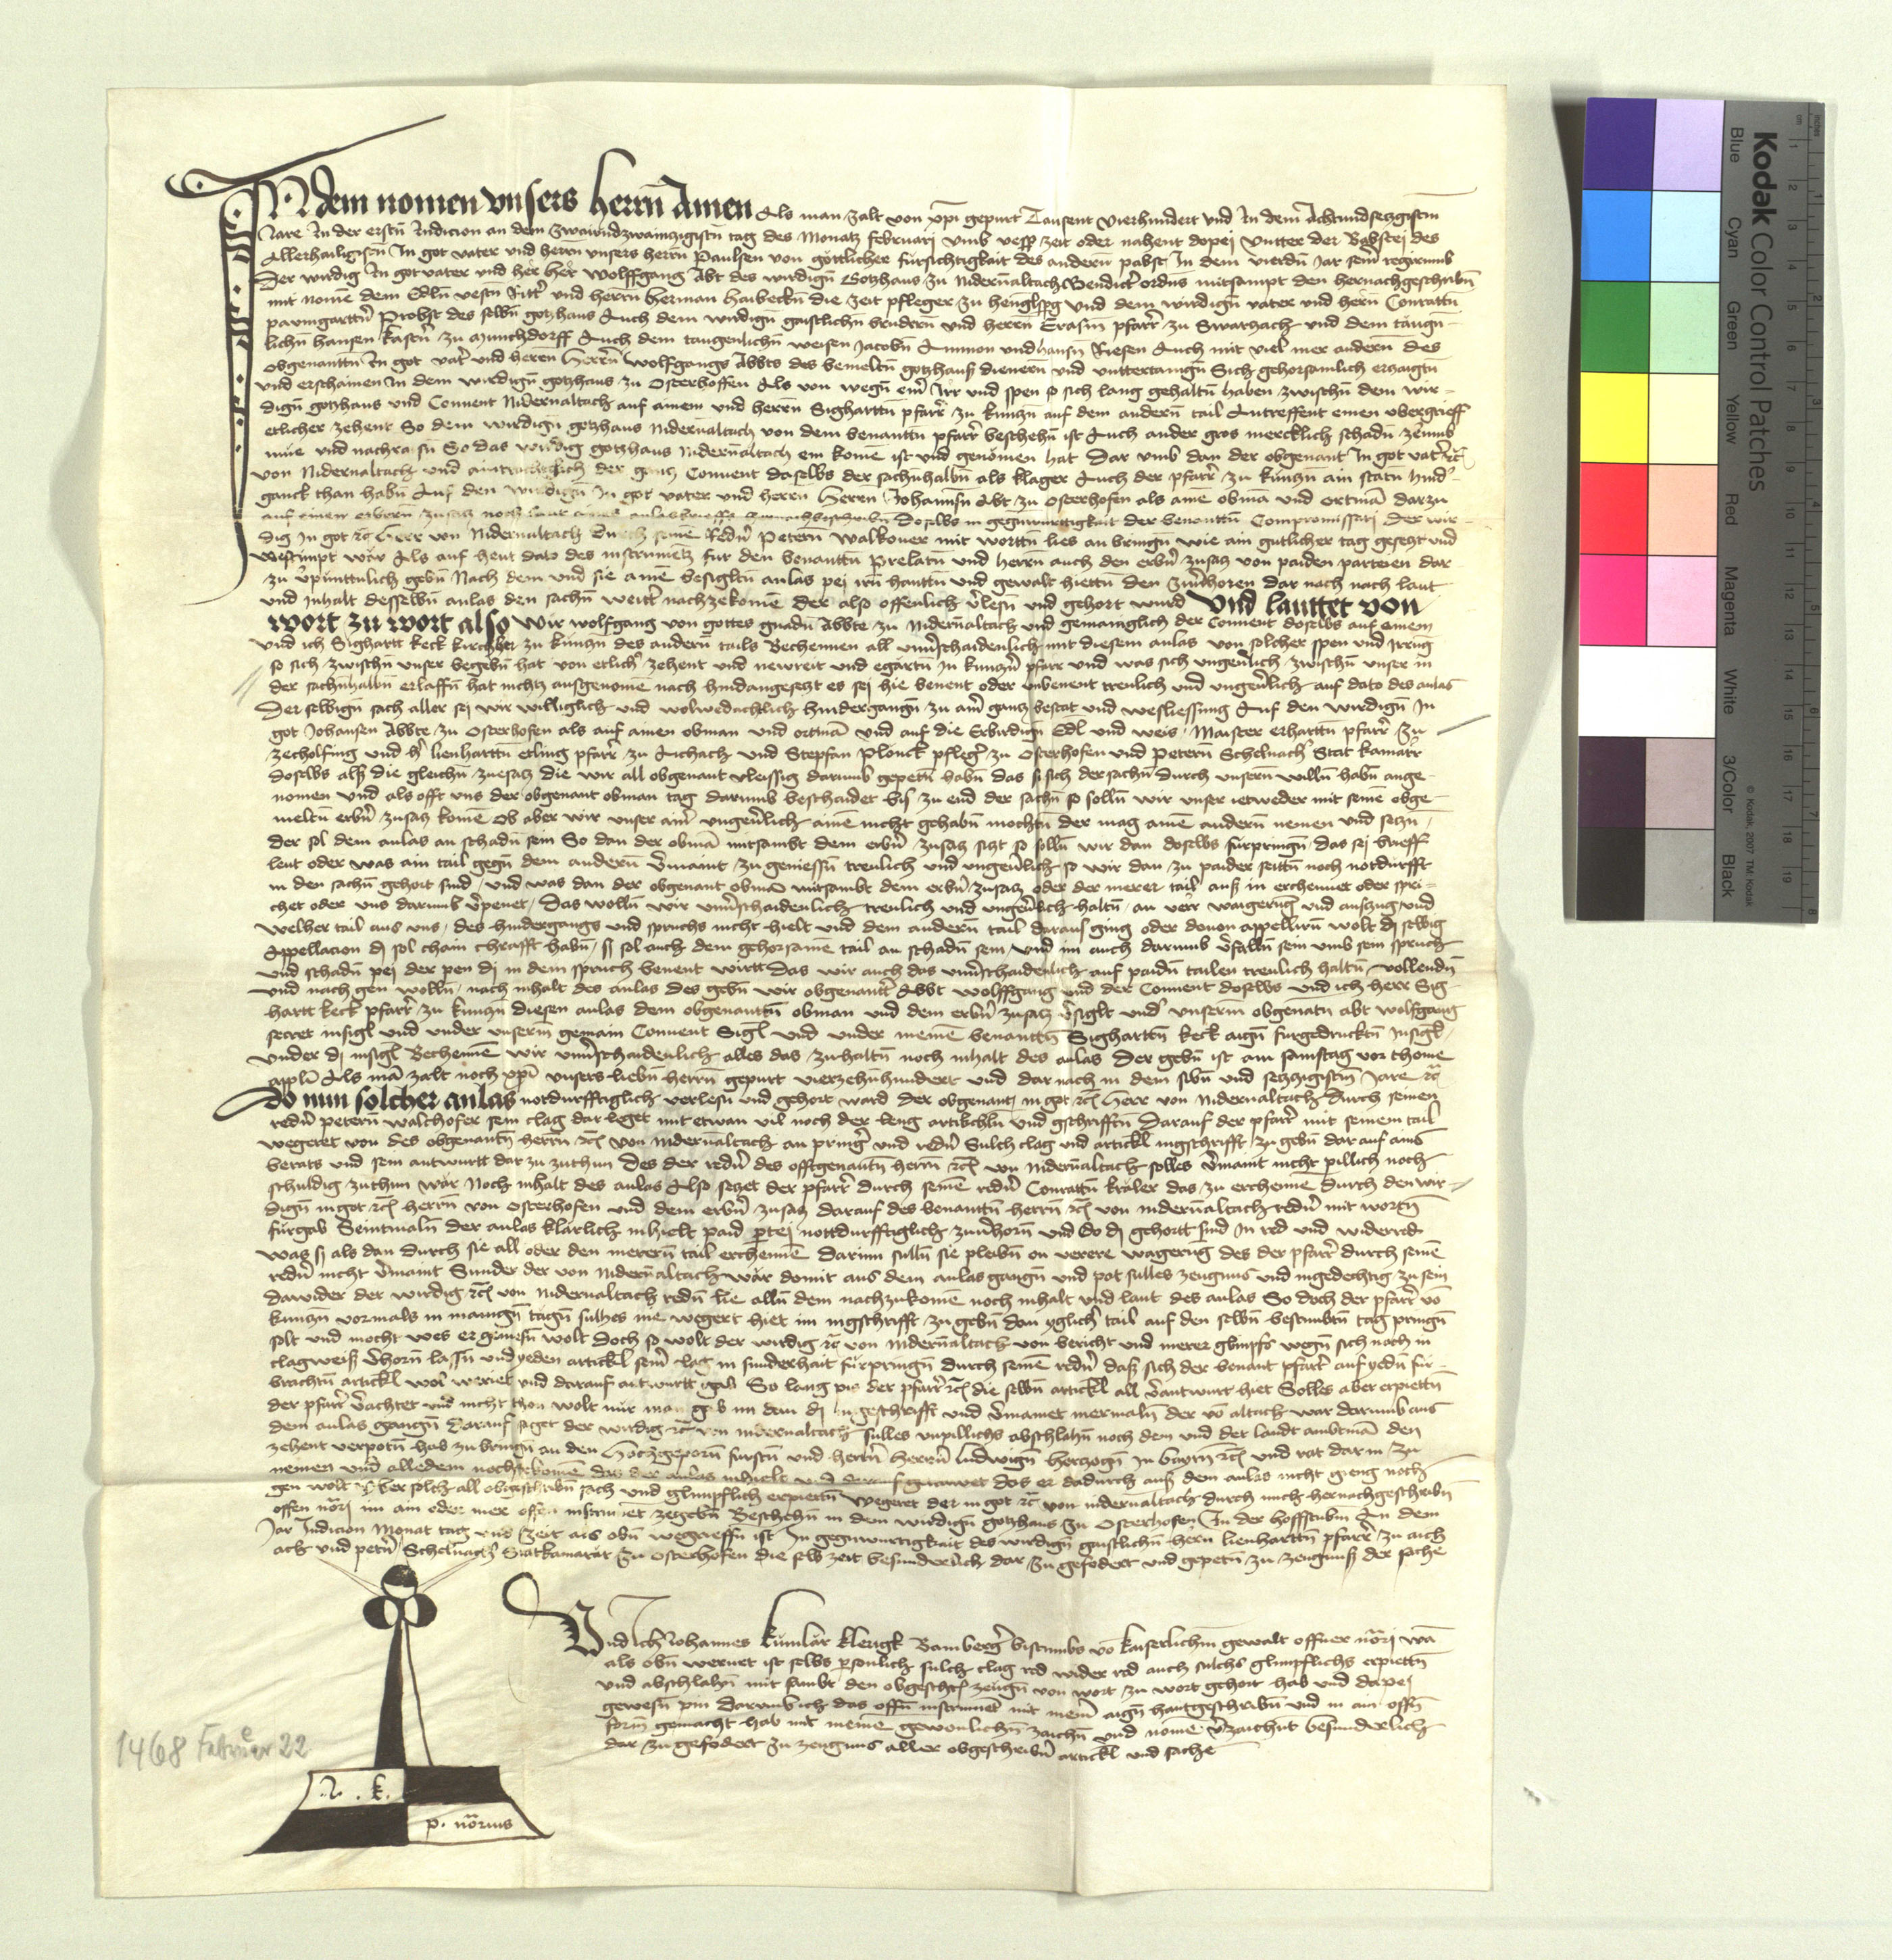 In dem nomen vnsers herrn Amen Als man zalt von xpi gepurt Tausent vierhundert vnd In dem Achtundsechzigistn
Jare In der erstn Indicion an dem zwaiundzwainzigistn tag des Monatz februarj vmb vesp zeit oder nahent dopej Vntter der Babstej des
Allerhailigistn In got vater vnd herrn vnsers herrn Paulsen von gottlicher fursichtigkait des andern pabst In dem vierdn Jar seins regirumb
Der wirdig In got vater vnd her her Wolffgang Abt des wirdign Gotzhaus zu Nidernaltach Bendictr ordns mitsampt den hernachgeschribn
mit nomen dem Edln vestn Rittr vnd herrn herman haibeckn die zeit pfleger zu henglspg vnd dem wirdign vater vnd hern Conrattn
paumgarttnr Probst des selbn gotzhaus Auch dem wirdign gaistlichn brudern vnd herrn Erasm pfarrr zu Swarzach vnd dem taugn-
lichn hansen kastnr zu Munchdorff Auch dem taugenlichn weisen Jacobn Ammon vnd hansn Riesen Auch mit viel mer andern des
obgenanttn In got vatr vnd herrn Herrn Wolfgangs Abbts des bemeltn gotzhauß dienern vnd vnttertanign Sich gehorsamlich erzaigtn
vnd erschainen In dem wirdign gotzhaus zu Osterhoffen Als von wegn einr Irr vnd spen so sich lang gehaltn haben zwischn dem wir-
dign gotzhaus vnd Conuent Nidernaltach auf ainem vnd herrn Sigharttn pfarrr zu kunzn auf dem andern tail Antreffent einen vbergrieff
etlicher zehent So dem wirdign gotzhaus Nidernaltach von dem benanttn pfarrr beschehn ist Auch ander gros mercklich schadn
mue vnd So das wirdig gotzhaus Nidernaltach ein kome ist vnd genomen hat Dar vmb dan der obgenant In got vatr rc
von Nidernaltach vnd der ganz Conuent doselbs der sachnhalbn als klager Auch der pfarrr zu kunzn ain statn hind-
ganck than habn Auf den wirdign In got vater vnd herrn Herrn Johannsn Abt zu Osterhofen als aine obma vnd ortma darzu
auf einen erbern zusatz noch laut doselbs in gegenwurttigkait der benanttn Compromissarj Der wir-
dig In got rc Herr von Nidernaltach Durch seine Rednr Petern Walkouer mit worttn lies an bringn wie ain gutlicher tag gesetzt vnd
westimpt war Als auf heut dato des instrumetz fur den benanttn Prelatn vnd herrn auch den erbrn zusatz von paiden parteien dar
zu gebn Nach dem vnd sie aine besigltn anlas pei irn hanttn vnd gewalt hiettn den dar nach nach laut
vnd Inhalt desselbn anlas den sachn weittr nachzekome Der also offenlich vrlesn vnd gehort wurd Vnd lauttet von
wort zu wort also Wir wolfgang von gottes gnadn Abbte zu Nidernaltach vnd gemaingklich der Conuent doselbs auf einem
vnd ich Sighartt Keck kirchher zu kunzn des andern tails Bechennen all vnuerschaidenlich mit diesem anlas von solcher spen vnd Irrung
so sich zwischn vnser begebn hat von etlichr zehent vnd newreit vnd egartn In kunznr pfarr vnd was sich vngeuerlich zwischn vnser in
der sachnhalbn erlaffn hat nichtz ausgenome nach hindangesetzt es sej hie benent oder vnbenent treulich vnd vngeuerlich auf dato des anlas
Der selbign sach aller sej wir williglich vnd wolbedachtlich hindergangn zu ainr ganz bestat vnd Auf den wirdign In
got Johansen Abbte zu Osterhofen als auf ainen obman vnd ortma vnd auf die Erbirdign Edl vnd weis Maister erharttn pfarrr zu
zecholfing vnd hr lienharttn etling pfarrr zu Aichach vnd Stepfan Plonck pflegr zu Osterhofen vnd Petern Schelnachr Stat kamarr
doselbs alß die gleichn zuesatz die wir all obgenant vleissig darumb gepetn habn das si sich der sachn durch vnsern willn habn ange-
nomen Vnd als offt vns der obgenant obman tag darumb beschaidet bis zu end der sachn so solln wir vnser ietweder mit seine obge-
meltn erbrn zusatz kome Ob aber wir vnser ainr vngeuerlich aine nicht gehabn mochtn der mag aine andern nemen vnd sezn
der sol dem anlas an schadn sein So dan der obma mitsambt dem erbrn zusatz sitzt so solln wir dan doselbs furpringn das sej brieff
leut oder was ain tail gegn dem andern vrmaint zu geniessn treulich vnd vngeuerlich so wir dan zu paider seittn noch notdurfft
in den sachn gehort sind vnd was dan der obgenant obma mitsambt dem erbrn zusatz oder der merer tail auß in erchennet oder spri-
chet oder vns darumb vrpenet Das wolln wir vnuerschaidenlich treulich vnd vngeuerlich haltn an verr waigerung vnd auszug vnd
welher tail aus vns des hindergangs vnd spruchs nicht hielt vnd dem andern tail darauß ging oder dauon appellirn wolt dj selbig
Appellacion dj sol chain chrafft habn si sol auch dem gehorsame tail an schadn sein vnd im auch darumb vrfalln sein vmb sein spruch
vnd schadn pej der pen dj in dem spruch benent wirtt Das wir auch das vnuerschaidenlich auf paidn tailen treulich haltn vollendn
vnd nach gen wolln nach inhalt des anlas des gebn wir obgenantr Abbt Wolffgang vnd der Conuent doselbs vnd ich herr Sig-
hartt keck pfarrr zu kunzn diesen anlas dem obgenanttn obman vnd dem erbrn zusatz vrsiglt vndr vnserm obgenatn abt wolfgang
secret insigl vnd vnder vnserm gemain Conuent Sigl vnd vnder meine benanttn Sigharttn keck aign furgedrucktn Insigl
vnder dj insigl Bechenne wir vnuerschaidenlich alles das zu haltn noch inhalt des anlas Der gebn ist am samstag vor thome
appli Als ma zalt noch xpi vnsers liebn herrn gepurt vierzehnhundert vnd dar nach in dem sibn vnd sechzigistn Jare rc
Do nun solcher anlas notdurfftiglich verlesn vnd gehort ward der obgenant in got rc Herr von Nidernaltach Durch seinen
rednr petern walchofer sein clag dar leget mit etwan vil noch der leng artickln vnd gschrifftn Darauf der pfarrr mit seinem tail
wegeret von des obgenantn herrn rc von Nidernaltach an pringr vnd rednr Sulch clag vnd artickl ingschrifft zu gebn dar auf ains
berats vnd sein antwurtt dar zu zuthun Des der rednr des offtgenantn herrn rc von Nidernaltach solles vrmaint nicht pillich noch
schuldig zuthun war Noch inhalt des anlas Also setzet der pfarrr durch seine rednr Conrattn kraler das zu erchenne durch den wir-
dign in got rc herrn von Osterhofen vnd dem erbrn zusatz darauf des benanttn herrn rc von nidernaltach rednr mit wortn
furgab Seintmaln der anlas klarlich inhielt paid partej nottdurfftiglich zuuerhorn vnd Do dj gehortt sind In red vnd widerred
was sj als dan durch sie all oder den merern tail erchenne Darinn sulln sie pleibn on verere wagerung des der pfarrr durch seine
rednr nicht vrmaint Sunder der von Nidernaltach war domit aus dem anlas gangn vnd pat sulles zeugnus vnd ingedechtig zu sein
dawider der wirdig rc von Nidernaltach redn lie alln dem nachzukome noch inhalt vnd laut des anlas So doch der pfarrr vo
kunzn vormals in manign tagn sulhes nie wegert hiet im ingschrifft zu gebn dan yglichr tail auf den selbn bestimbtn tag pringn
solt vnd mocht wes er geniesn wolt Doch so wolt der wirdig rc von Nidernaltach von bericht vnd merer glimpfs wegn sich noch in
clagweiß vrhorn lassn vnd yeden artickl seinr clag in sunderhait furpringn durch seine rednr daß sich der benant pfarrr auf yedn fur-
brachtn artickl wol vnd darauf antwurtt gab So lang pis der pfarrr rc die selbn artickl all vrantwurt hiet Solles aber erpiettn
der pfarrr vrachtet vnd nicht thon wolt nur man gab im dan dj ingeschrifft vnd vrmainet mermaln der vo altach war darumb aus
dem anlas gangn Darauf saget der wirdig rc von nidernaltach sulles vnpillichs abschlahn noch dem vnd der landt ambtma den
zehent verpotn hab zu bringn an den Hochgeporn furstn vnd herrn herrn ludwign herzogn In bayrn rc vnd rat darin zu
nemen vnd alledem nochzekome das der anlas inhielt vnd darauf das er dadurch auß dem anlas nicht gieng noch
gen wolt Vber solch all obgeschribn sach vnd glimpflich erpiettn Wegeret der in got rc von nidernaltach durch mich hernachgeschribn
offen norj im ain oder mer offen instrument zegebn Beschehn in dem wirdign gotzhaus zu Osterhofen In der hofstubn An dem
Jar Indicion Monat tag vnd Zeit als obn wegreiffn ist In gegenwurtigkait des wirdign gaistlichn hern lienharttn pfarrr zu aich
ach vnd petrn Schelnachr Statkamarar zu Osterhofen die selb zeit besunderlich dar zu gefodert vnd gepetn zu zeugnuß der sache
Vnd ich Johannes kumlar klerigk Bambergr bistumbs vo kaiserlichm gewalt offner norj wa
als obn wernet ist selbs personlich sulch clag red wider red auch sulchs glimpflichs erpiettn
vnd abschlahn mit sambt den obgeschrc zeugn von wort zu wort gehort hab vnd dapej
gewesn pin Darumb ich das offn instrument mit meinr aign hantgeschribn vnd in ain offn
form gemacht hab mit meine gewonlichn zaichn vnd nome vrzaichnt besunderlich
dar zu gefodert zu zeugnus aller obgeschribn artickl vnd sache
1468 Februar 22
J. k.
p. norius
Kodak Color Control Patches
Blue Cyan Green Yellow Red Magenta White 3/Color Black
© Kodak, 2007 TM: Kodak